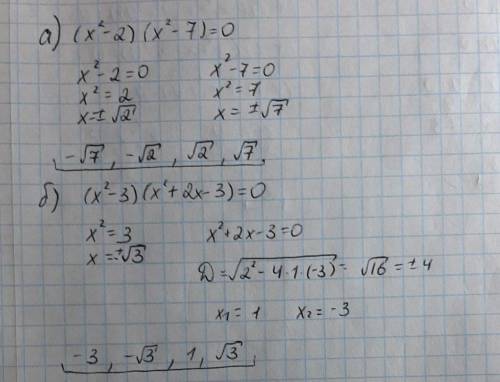 а) (x²-2)(x²-7)=0
x²-2=0 x²-7=0
x²=2 x²=7
x=±√2 x=±√7
-√7, -√2, √2, √7,
б) (x²-3)(x²+2x-3)=0
x²=3 x²+2x-3=0
x=±√3
D=√2²-4·1·(-3)=√16=±4
x₁=1 x₂=-3
-3, -√3, 1, √3,